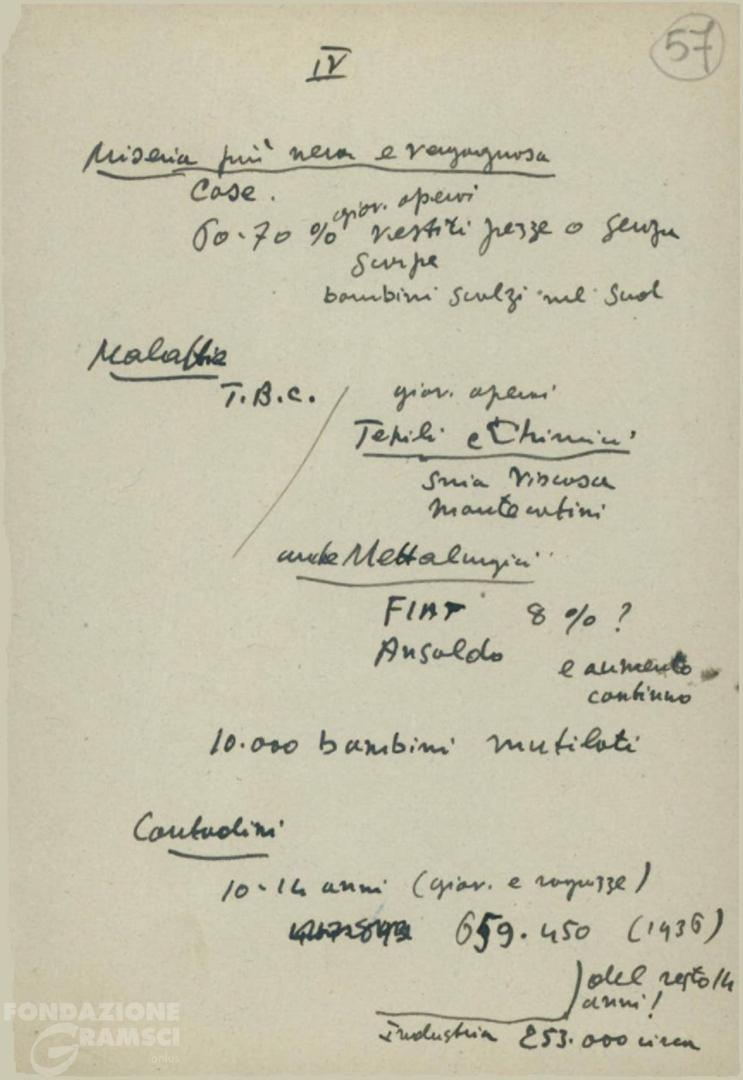 57
IV
Miseria più nera e vergognosa
Case.
giov. operai
60-70 % vestiti pezze o senza
scarpe
bambini scalzi nel Sud
Malattie
T.B.C. / giov. operai
Tessili e Chimici
Snia Viscosa
Montecatini
anche Mettalurgici
FIAT 8 % ?
Ansaldo
e aumento
continuo
10.000 bambini mutilati
Contadini
10-14 anni (giov. e ragazze)
659.450 (1936)
del resto 14
anni!
industria 253.000 circa
FONDAZIONE
GRAMSCI
onlus